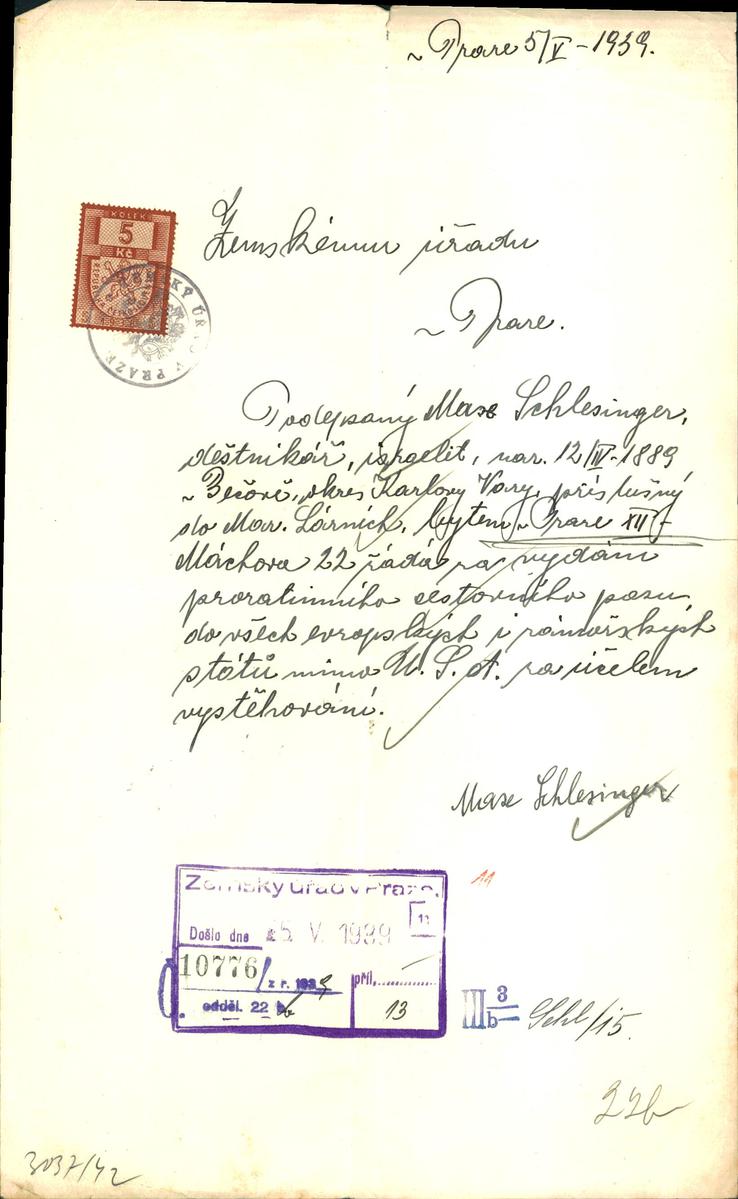 v Praze 5/V - 1939.
KOLEK
5
Kč
Zemskému úřadu
v Praze.
Podepsaný Max Schlesinger,
deštnikář, israelit, nar. 12/IV-1889
v Bečově, okres Karlovy Vary, příslušný
do Mar. Lázních, bytem v Praze XII-
Máchova 22 žádá za vydání
prozatimního cestovního pasu
do všech evropských i zámořských
států mimo U. S. A. za účelem
vystěhování.
Max Schlesinger
Zemský úřad v Praze.
11
Došlo dne 5. V. 1939
10776/ z r. 1939
příl.
odděl. 22 b
13
III 3/b Schl/15.
22b
3037/42